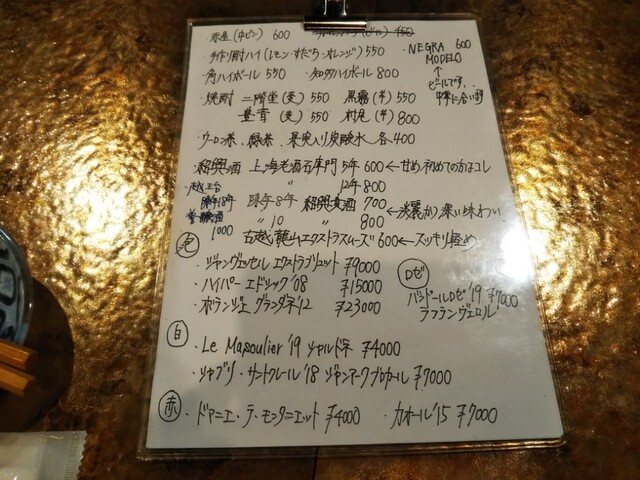 ・赤星(中ビン) 600
450
・手作り酎ハイ(レモン・すだち・オレンジ) 550
・NEGRA MODELO 600
↑
ビールです。
中華に合い〼
・角ハイボール 550 ・知多ハイボール 800
・焼酎 二階堂(麦) 550 黒霧(芋) 550
(麦) 550 村尾(芋) 800
・ウーロン茶、緑茶、果実入り炭酸水 各400
・紹興酒 上海老酒石库门 5年 600 ←甘め 初めての方はコレ
〃 12年 800
・越王台
陳年18年
1000
陳年8年 紹興貴酒 700
〃 10 〃 800
←淡麗かつ深い味わい
古越龍山エクストラスムーズ 600 ←スッキリ軽め
泡
・ジャンヴェッセル エクストラブリュット ¥9000
・ハイパー エドシック '08 ¥15000
・ボランジェ グランダネ '12 ¥23000
ロゼ
バンドールロゼ '19 ¥7000
ラフランヴェロル
白
・Le Masoulier '19 シャルドネ ¥4000
・シャブリ・サントクレール '18 ジャンマークブロカール ¥7000
赤
・ドマニエ・ラ・モンタニエット ¥4000 ・カオール '15 ¥7000